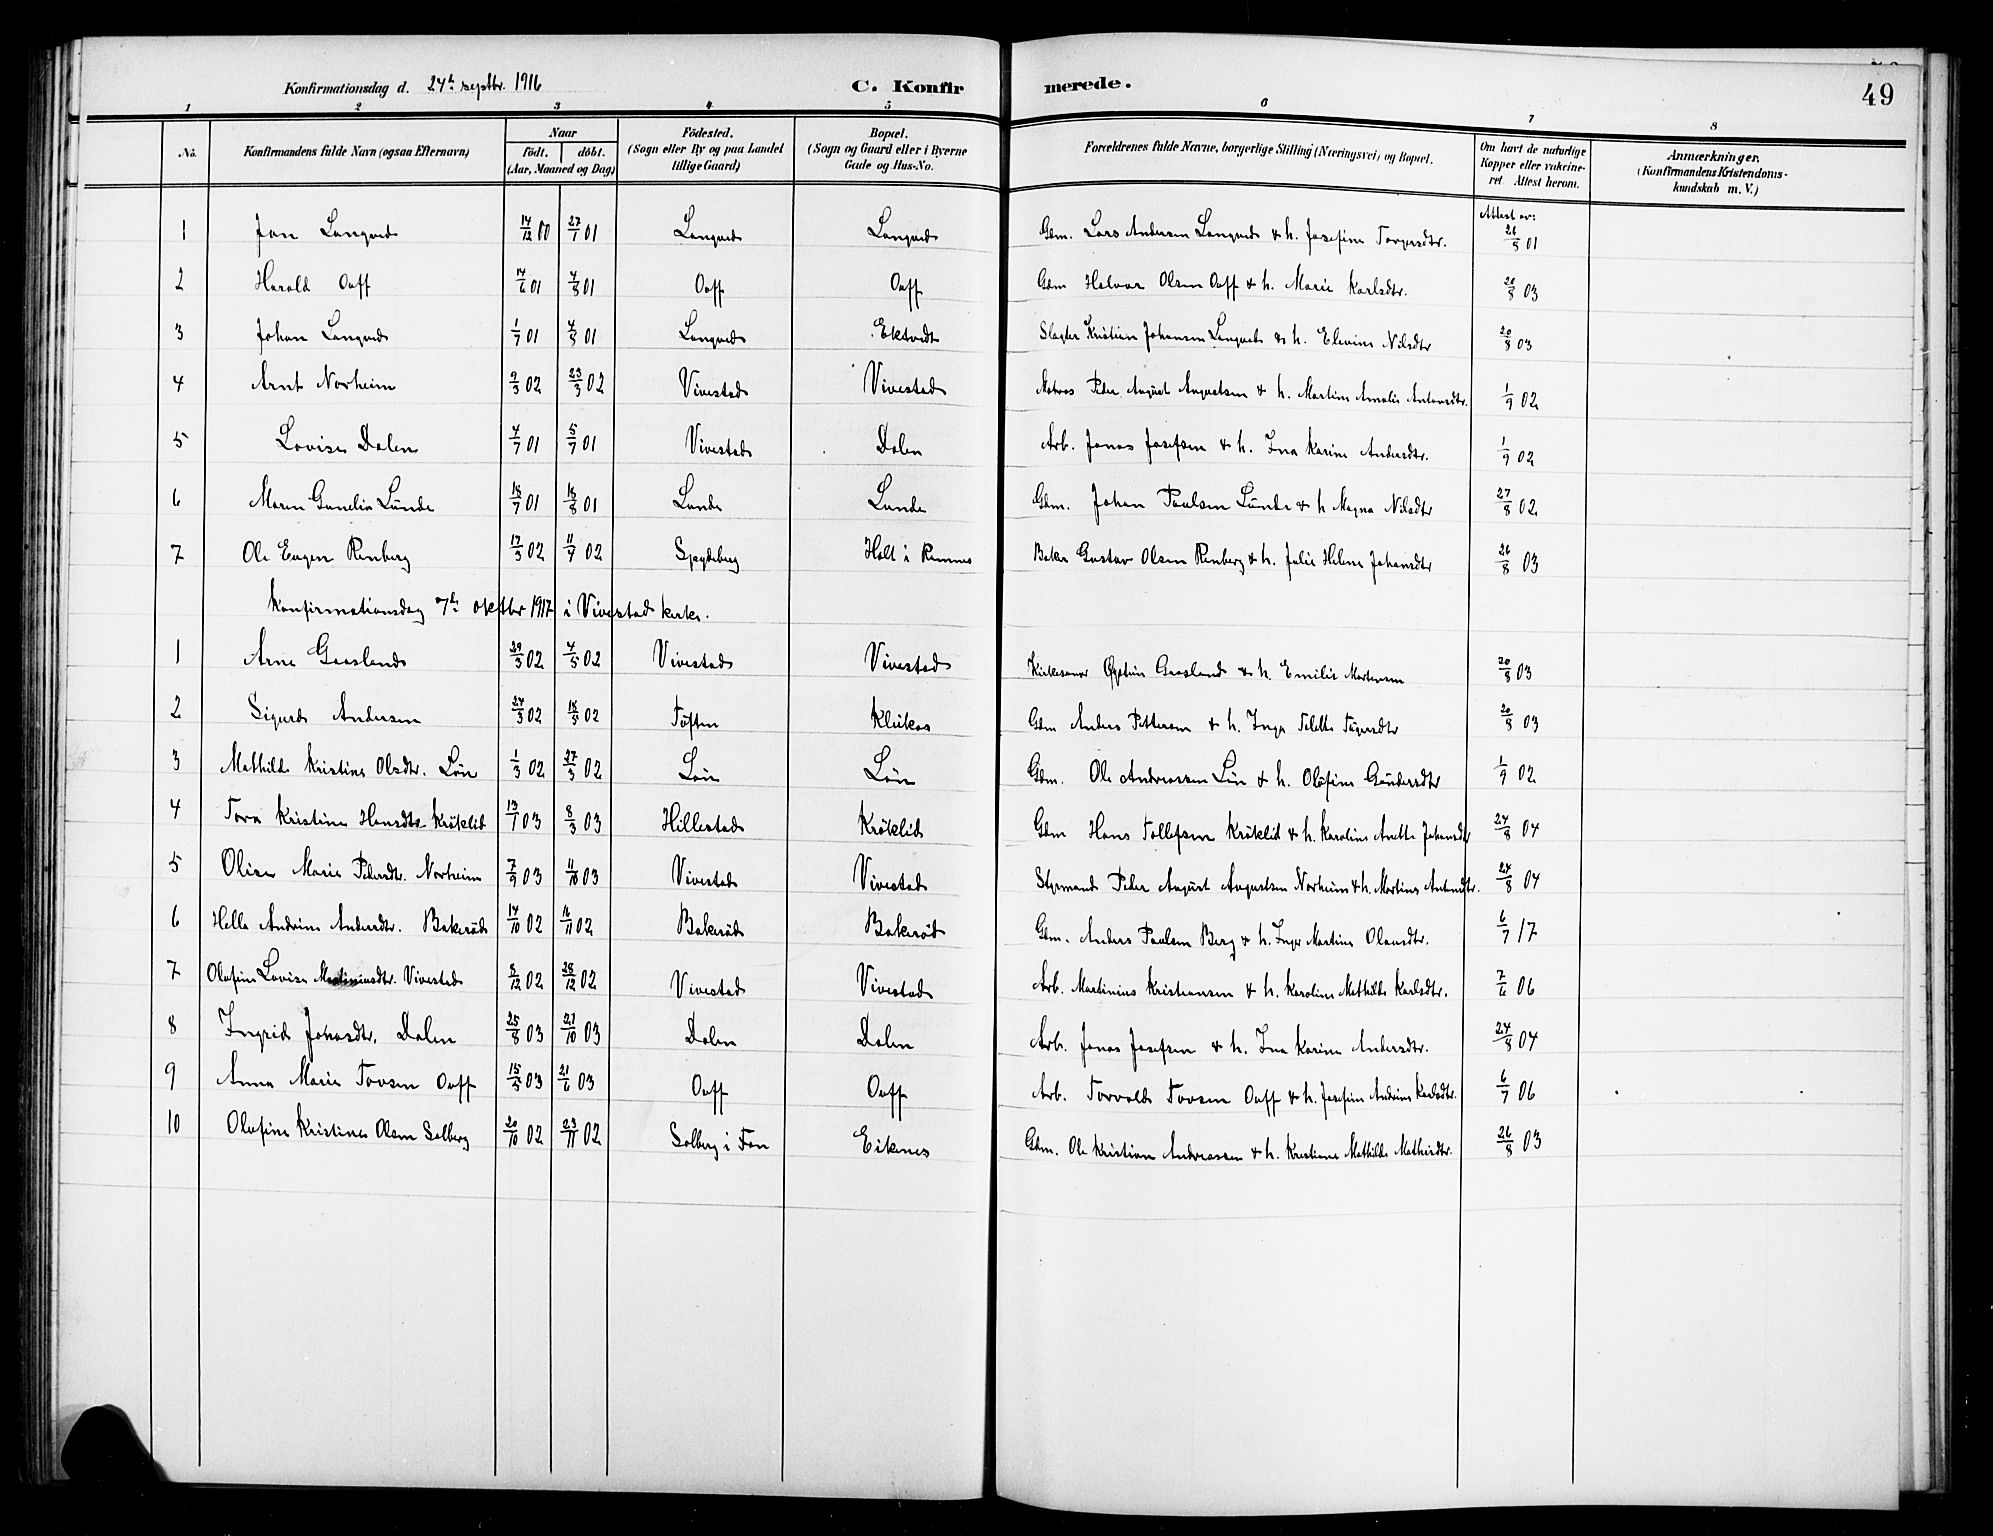 Konfirmationsdag d. 24de septbr. 1916 C. Konfirmerede. 49
1 2 3 4 5 6 7 8
No. Konfirmandens fulde Navn (ogsaa Efternavn) Naar födt. döbt. (Aar, Maaned og Dag) Födested. (Sogn eller By og paa Landet tillige Gaard) Bopæl. (Sogn og Gaard eller i Byerne Gade og Hus-No. Forældrenes fulde Navne, borgerlige Stilling (Næringsvei) og Bopæl. Om havt de naturlige Kopper eller vakcineret. Attest herom. Anmærkninger. (Konfirmandens Kristendomskundskab m. V.)
Attest av:
1 Jon Langved 14/12 00 27/1 01 Langved Langved Gdm. Lars Andersen Langved & h. Josefine Torgersdtr. 26/8 01
2 Harald Ouff 14/6 01 4/8 01 Ouff Ouff Gdm Halvor Olsen Ouff & h. Marie Karlsdtr. 20/8 03
3 Johan Langved 1/7 01 4/8 01 Langved Ektvedt Slagter Kristian Johansen Langved & h. Elevine Nilsdtr 20/8 03
4 Arnt Norheim 2/3 02 23/3 02 Vivestad Vivestad Matros Peder August Augustsen & h. Martine Amalie Antonsdtr. 1/9 02
5 Lovise Dalen 4/7 01 5/9 01 Vivestad Dalen Arb. Jonas Josefsen & h. Ina Karine Andersdtr. 1/9 02
6 Maren Gunelia Lunde 18/7 01 18/8 01 Lunde Lunde Gdm. Johan Paulsen Lunde & h Magna Nilsdtr 27/8 02
7 Ole Eugen Renberg 17/3 02 11/9 02 Spydeberg Holt i Ramnes Baker Gustav Olsen Renberg & h. Julie Helene Johansdtr 26/8 03
Konfirmationsdag 7de oktbr 1917 i Vivestad kirke.
1 Arne Gaasland 29/3 02 4/5 02 Vivestad Vivestad Kirkesanger Øystein Gaasland & h. Emilie Mortensen 20/8 03
2 Sigurd Andersen 24/3 02 18/5 02 Toften Klukos Gdm Anders Pettersen & h. Inga 20/8 03
3 Mathilde Kristine Olsdtr. Løn 1/3 02 27/3 02 Løn Løn Gdm. Ole Andreassen Løn & h. Olufine Gundersdtr 1/9 02
4 Tora Kristine Hansdtr Kröklid 13/1 03 8/3 03 Hillestad Kröklid Gdm Hans Tollefsen Kröklid & h. Karoline Anette Johansdtr 24/8 04
5 Olise Marie Pedersdtr. Norheim 7/9 03 11/10 03 Vivestad Vivestad Styrmand Peder August Augustsen Norheim & h. Martine Antonsdtr. 24/8 04
6 Hella Andrine Andersdtr. Bakeröd 14/10 02 16/11 02 Bakeröd Bakeröd Gdm. Anders Paulsen Berg & h. Inger Martine Olausdtr. 6/7 17
7 Olufine Lovise Martiniusdtr. Vivestad 8/12 02 28/12 02 Vivestad Vivestad Arb. Martinius Kristiansen & h. Karoline Mathilde Karlsdtr. 7/6 06
8 Ingrid Jonasdtr. Dalen 25/8 03 21/10 03 Dalen Dalen Arb. Jonas Josefsen & h. Ina Karine Andersdtr. 24/8 04
9 Anna Marie Tovsen Ouff 15/5 03 21/6 03 Ouff Ouff Arb. Torvald Tovsen Ouff & h. Josefine Andrine Karlsdtr. 6/7 06
10 Olufine Kristine Olsen Solberg 20/10 02 23/11 02 Solberg i Fon Eikenes Gdm. Ole Kristian Andreassen & h. Kristiane Mathilde Mathisdtr. 26/8 03